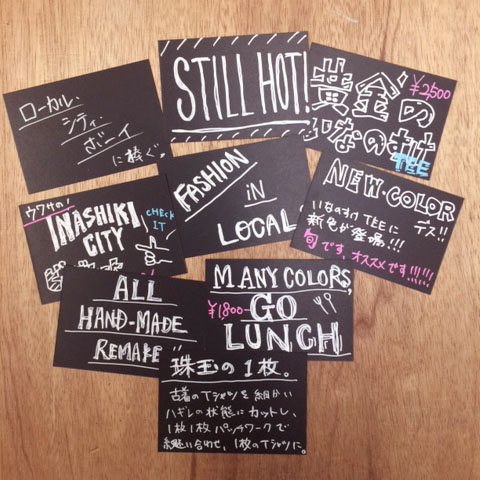 ローカル、
シティ、
ボーイ
に捧ぐ。
STILL HOT!
黄金の
¥2,500
いなのすけ
TEE
ウワサの!
INASHIKI
CITY
CHECK
IT
FASHION
IN
LOCAL
NEW COLOR
デス!!
いなのすけTEEに
新色が登場!!!
旬です、オススメです!!!!!!
ALL
HAND-MADE
REMAKE
MANY COLORS,
¥1800-
GO
LUNCH
珠玉の1枚。
古着のTシャツを細かい
ハギレの状態にカットし、
1枚1枚パッチワークで
縫い合わせ、1枚のTシャツに。